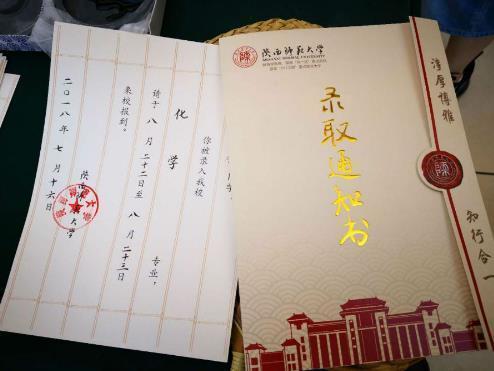 你被录入我校
化学
专业,
请于八月二十二日至八月二十三日
来校报到。
陕西师范大学
二〇一八年七月十六日
陕西师范大学
SHAANXI NORMAL UNIVERSITY
录取通知书
淳厚博雅
知行合一